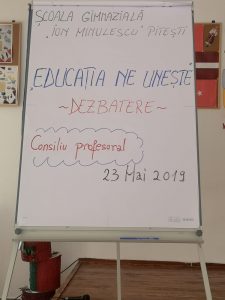 ȘCOALA GIMNAZIALĂ
„ION MINULESCU" PITEȘTI
„EDUCAȚIA NE UNEȘTE"
~DEZBATERE~
Consiliu profesoral
23 Mai 2019